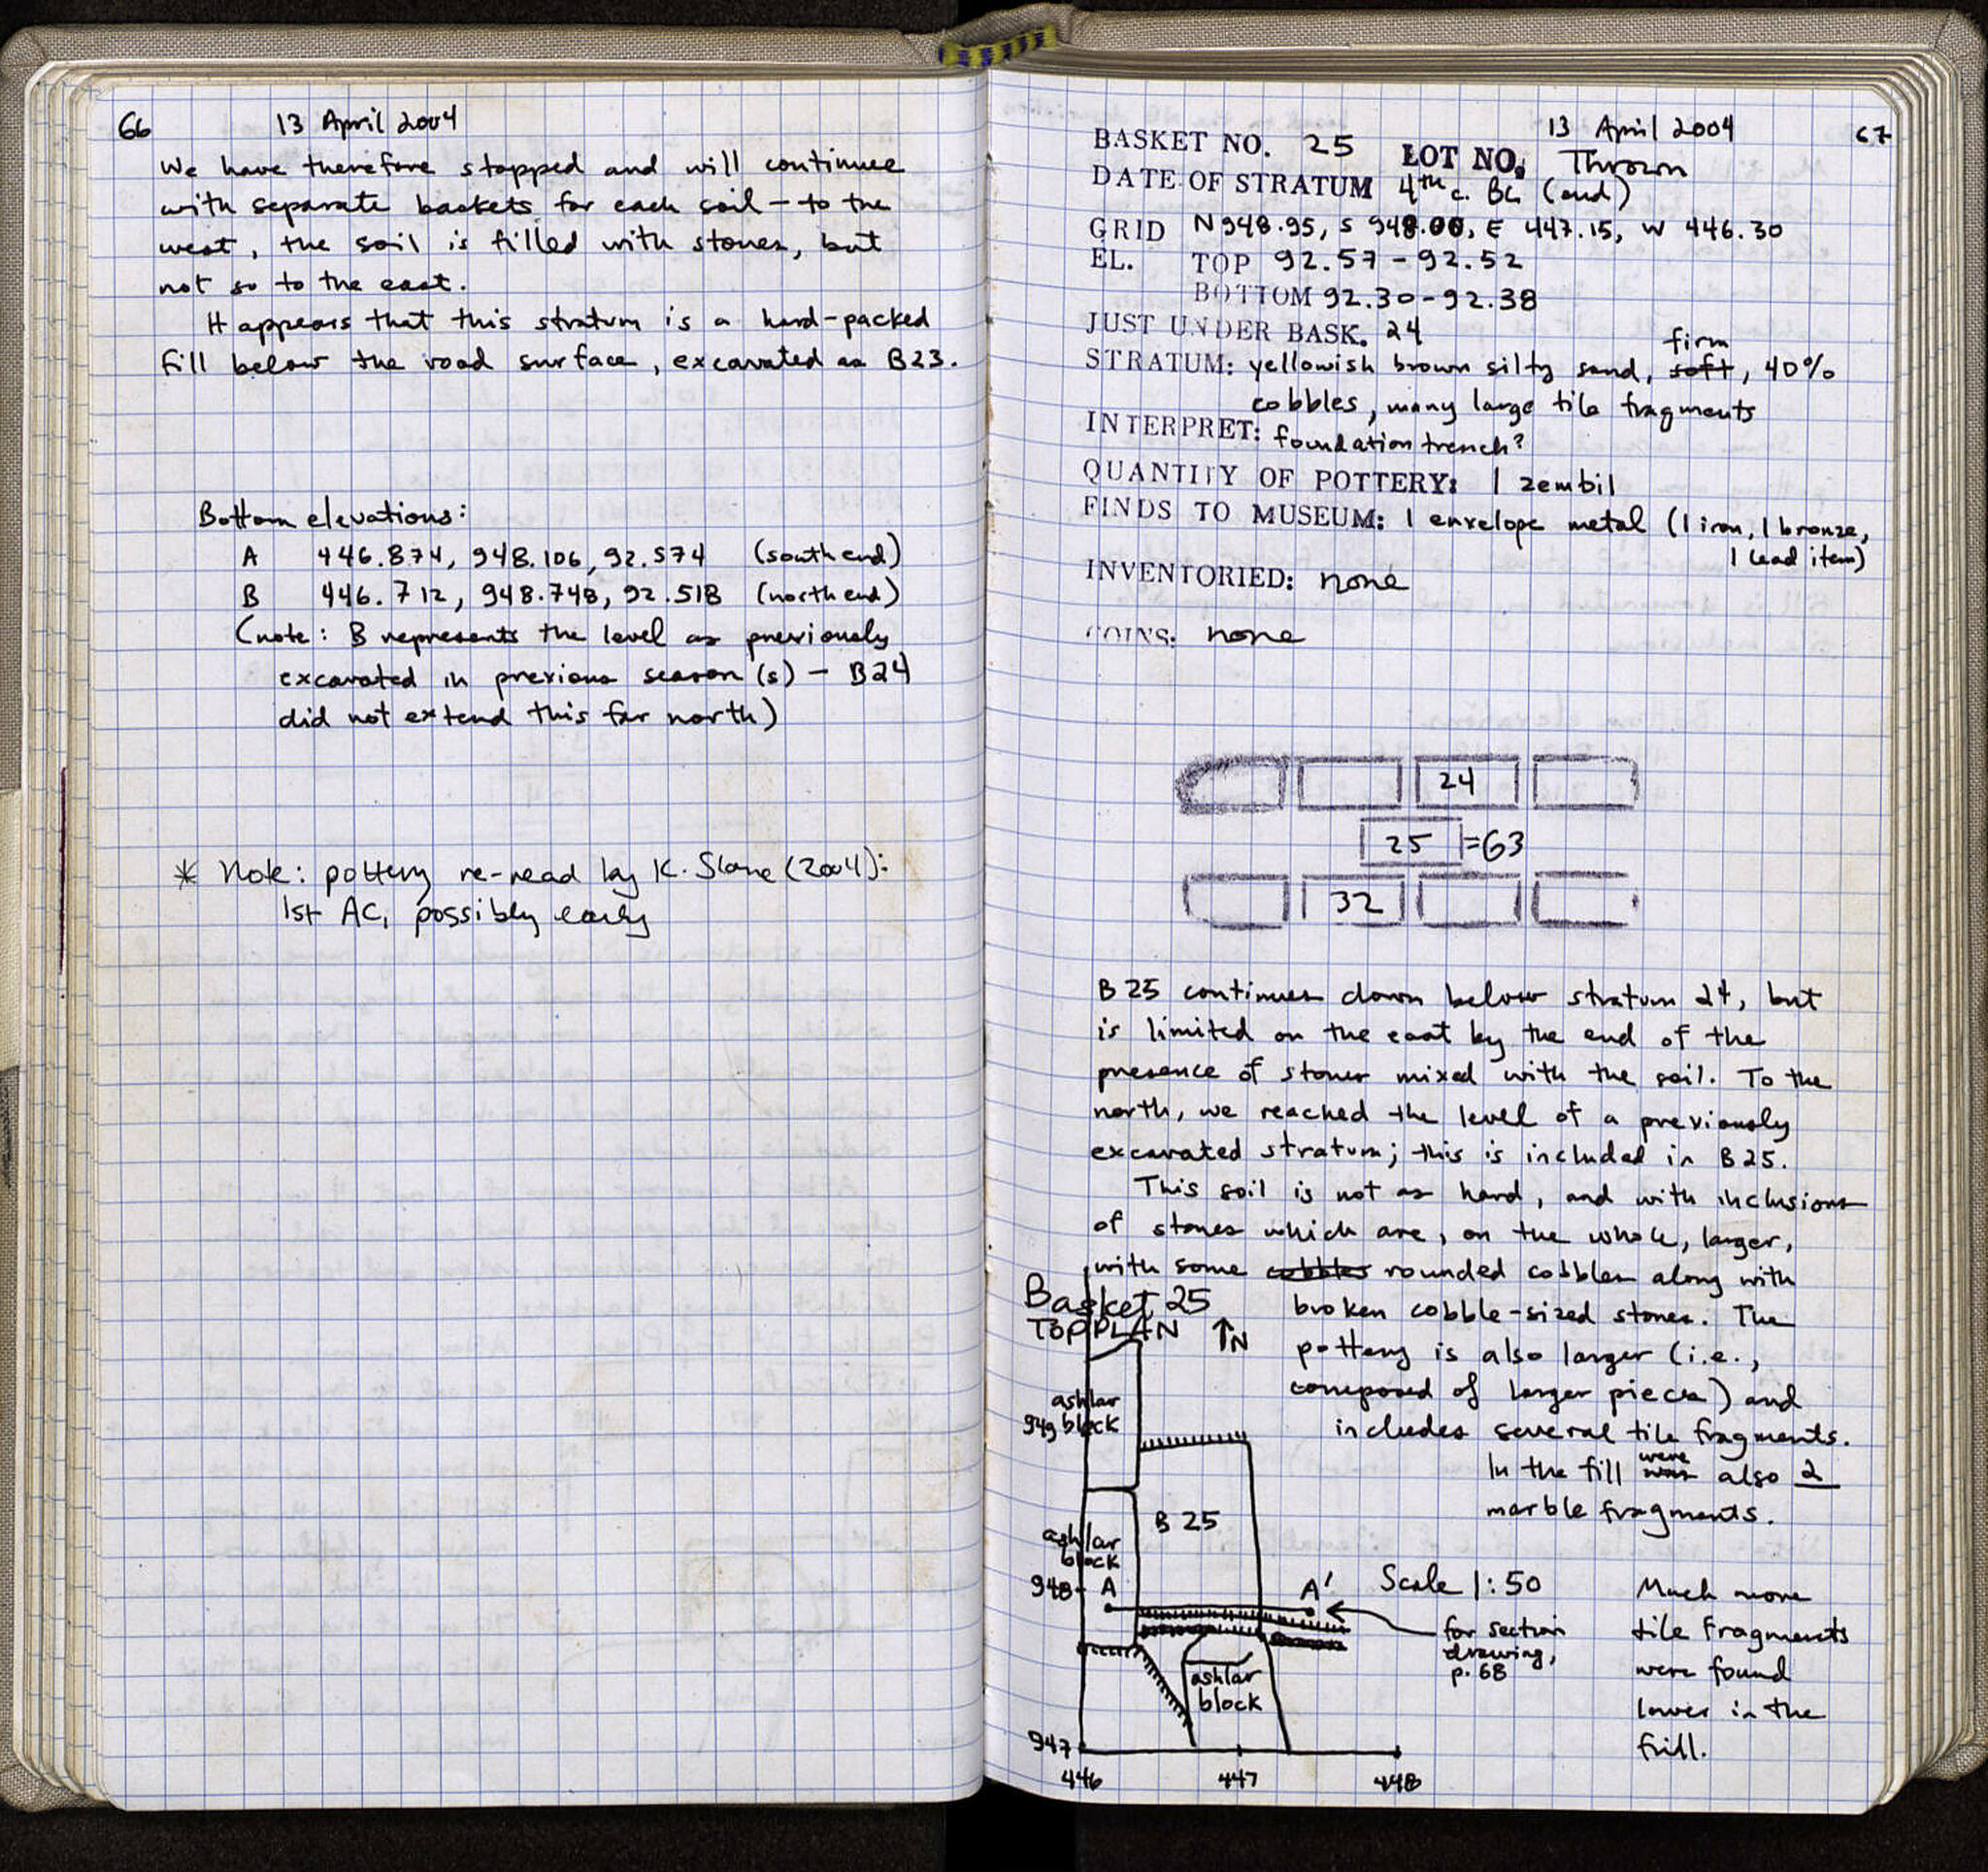 66 13 April 2004
We have therefore stopped and will continue
with separate baskets for each soil – to the
west, the soil is filled with stones, but
not so to the east.
It appears that this stratum is a hard-packed
fill below the road surface, excavated as B23.
Bottom elevations:
A 446.874, 948.106, 92.574 (south end)
B 446.712, 948.748, 92.518 (north end)
(note: B represents the level as previously
excavated in previous season(s) – B24
did not extend this far north)
* Note: pottery re-read by K. Slane (2004):
1st AC, possibly early
13 April 2004 67
BASKET NO. 25 LOT NO. Thrown
DATE OF STRATUM 4th c. BC (end)
GRID N 948.95, S 948.00, E 447.15, W 446.30
EL. TOP 92.57 - 92.52
BOTTOM 92.30 - 92.38
JUST UNDER BASK. 24
firm
STRATUM: yellowish brown silty sand, soft, 40%
cobbles, many large tile fragments
INTERPRET: foundation trench?
QUANTITY OF POTTERY: 1 zembil
FINDS TO MUSEUM: 1 envelope metal (1 iron, 1 bronze,
1 lead item)
INVENTORIED: none
COINS: none
24
25 =63
32
B 25 continues down below stratum 24, but
is limited on the east by the end of the
presence of stones mixed with the soil. To the
north, we reached the level of a previously
excavated stratum; this is included in B25.
This soil is not as hard, and with inclusions
of stones which are, on the whole, larger,
with some cobbles rounded cobbles along with
broken cobble-sized stones. The
pottery is also larger (i.e.,
composed of larger pieces) and
includes several tile fragments.
In the fill was were also 2
marble fragments.
Much more
tile fragments
were found
lower in the
fill.
Basket 25
TOP PLAN ↑N
ashlar
949 block
B 25
ashlar
block
948 A A' Scale 1:50
for section
drawing,
p. 68
ashlar
block
947
446 447 448